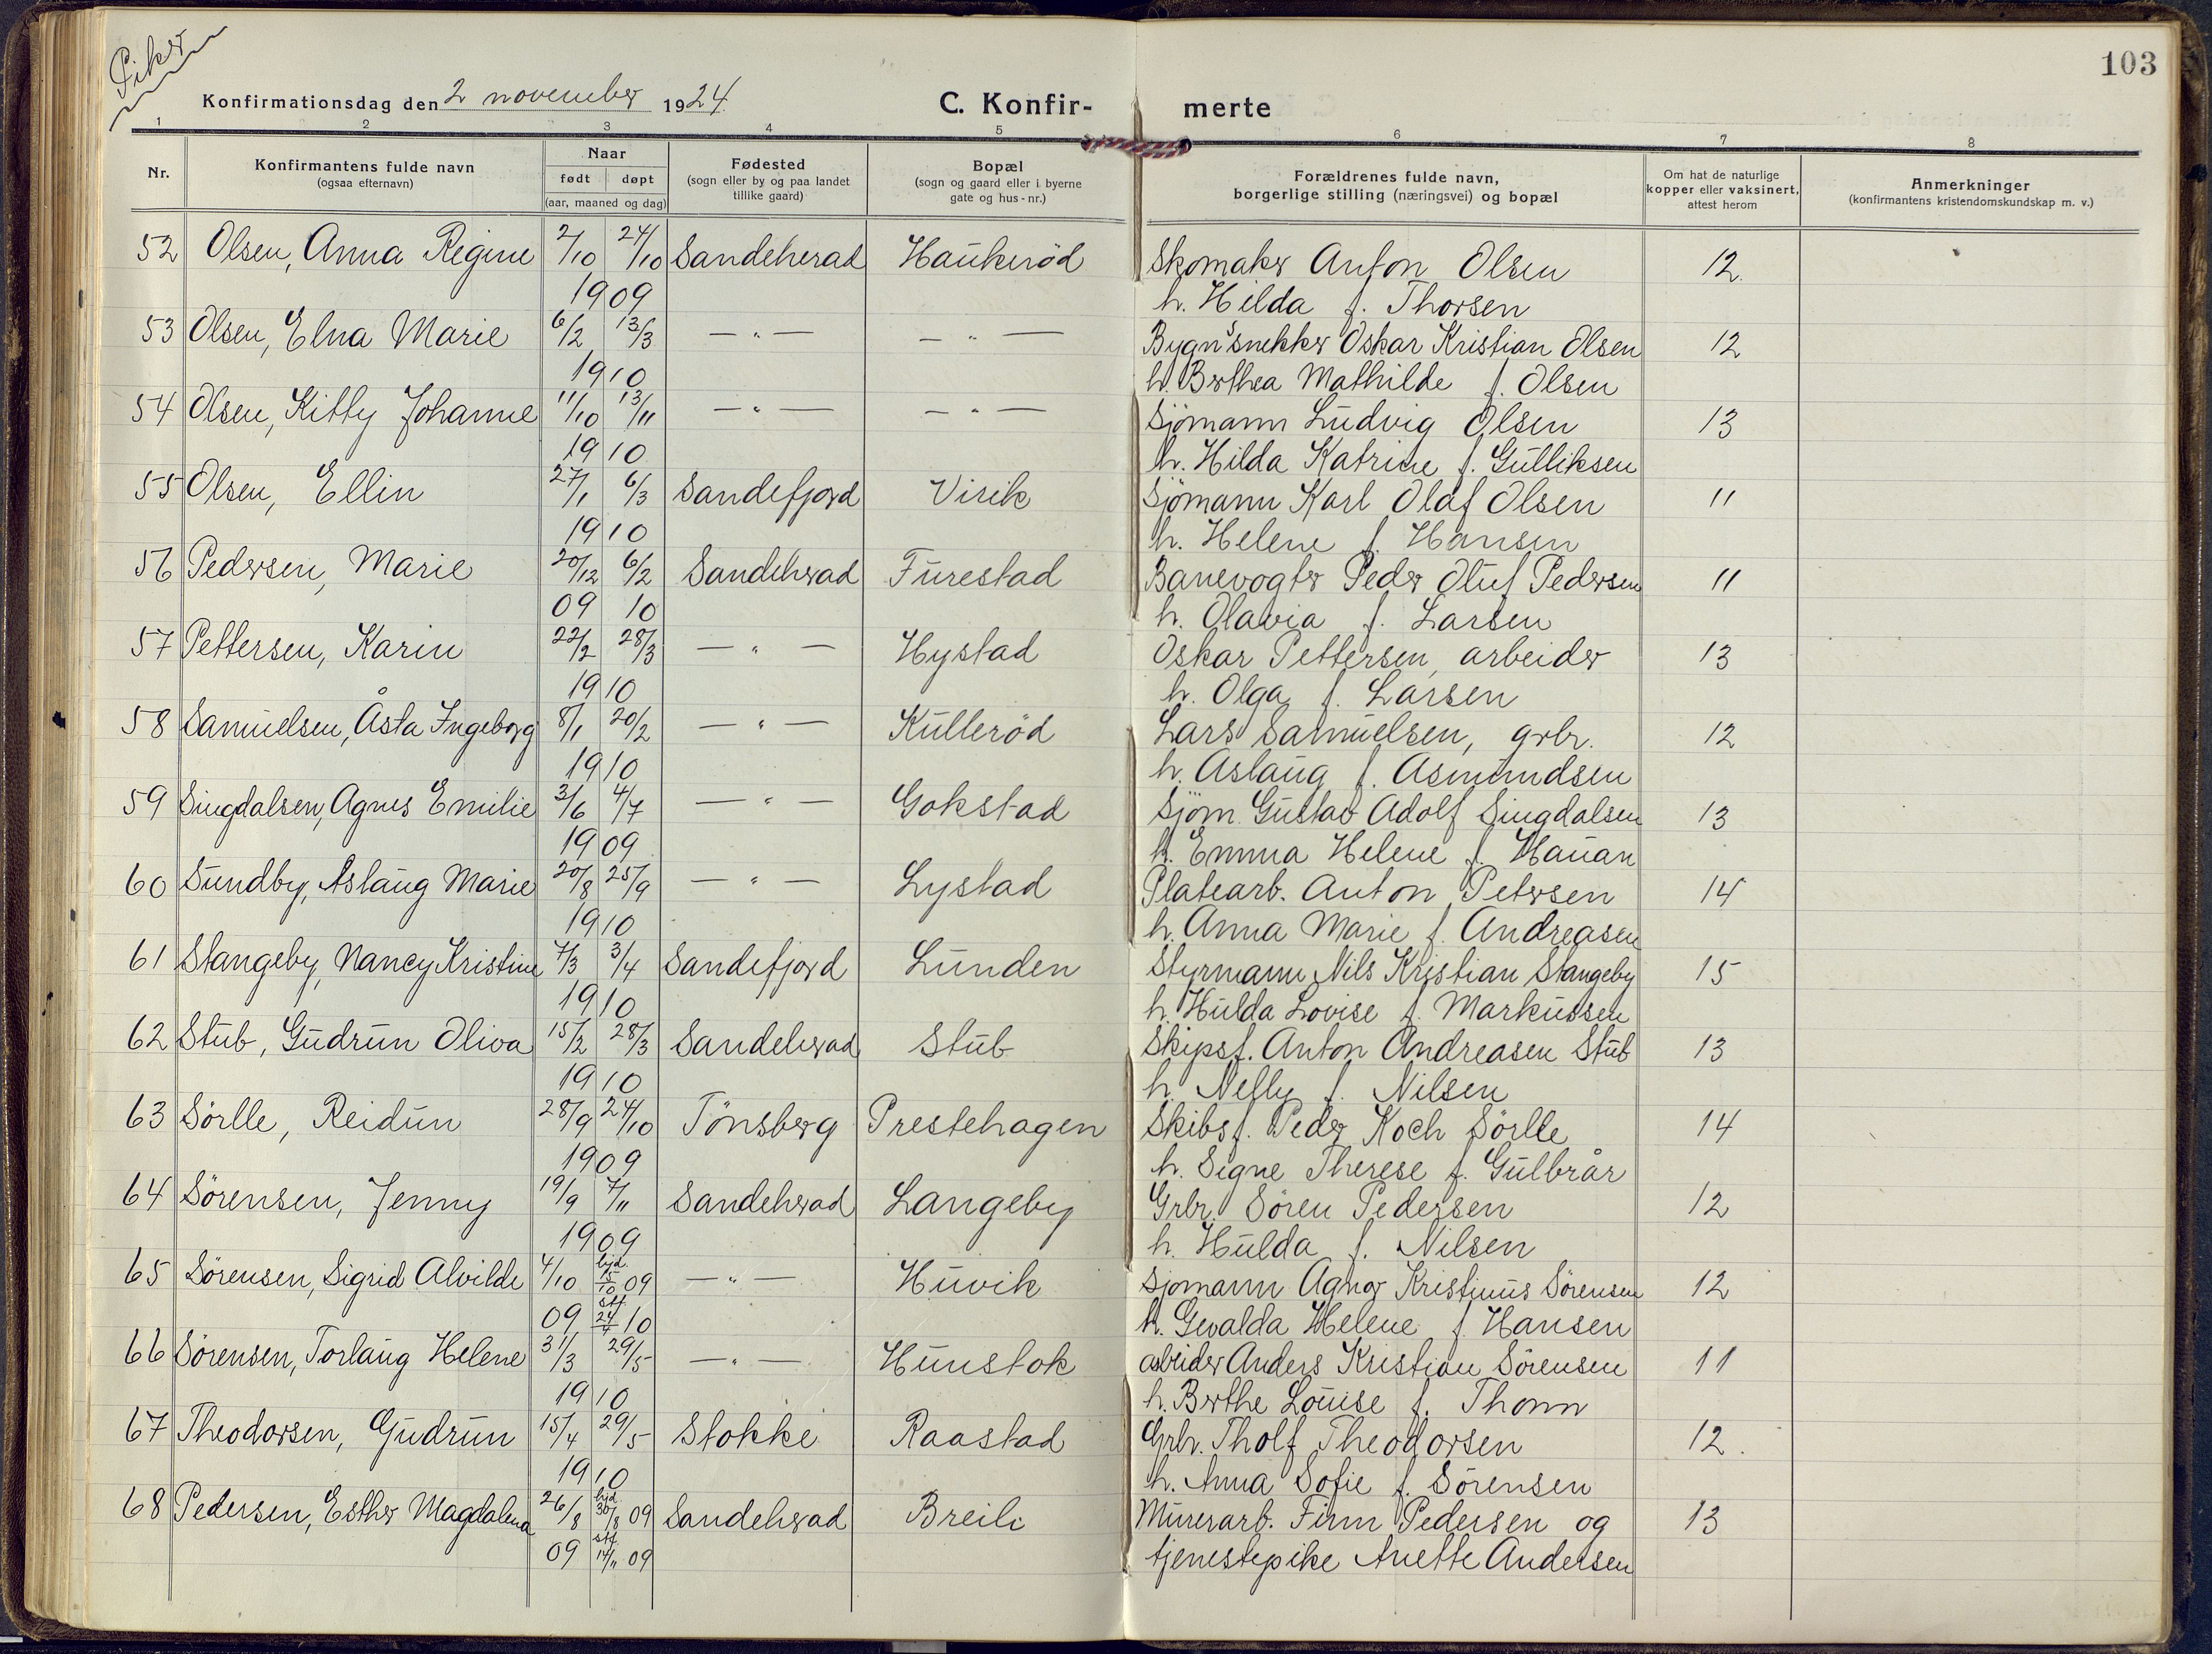 Piker
103
Konfirmationsdag den 2 november 1924.
C. Konfir- merte
1 2 3 4 5 6 7 8
Nr.
Konfirmantens fulde navn
(ogsaa efternavn)
Naar
født døpt
(aar, maaned og dag)
Fødested
(sogn eller by og paa landet
tillike gaard)
Bopæl
(sogn og gaard eller i byerne
gate og hus-nr.)
Forældrenes fulde navn,
borgerlige stilling (næringsvei) og bopæl
Om hat de naturlige
kopper eller vaksinert,
attest herom
Anmerkninger
(konfirmantens kristendomskundskap m. v.)
52 Olsen, Anna Regine 2/10 24/10 Sandeherad Haukerød Skomaker Anton Olsen 12.
1909 h. Hilda f. Thorsen
53 Olsen, Elna Marie 6/2 13/3 — " — — " — Bygn.snekker Oskar Kristian Olsen 12
1910 h. Berthea Mathilde f. Olsen
54 Olsen, Kitty Johanne 11/10 13/11 — " — — " — Sjømann Ludvig Olsen 13
1910 h. Hilda Katrine f. Gulliksen
55 Olsen, Ellin 27/1 6/3 Sandefjord Virik Sjømann Karl Olaf Olsen 11
1910 h. Helene f. Hansen
56 Pedersen, Marie 20/12 6/2 Sandeherad Furestad Banevogter Peder Oluf Pedersen 11
09 10 h. Olavia f. Larsen
57 Pettersen, Karin 22/2 28/3 — " — Hystad Oskar Pettersen, arbeider 13
1910 h. Olga f. Larsen
58 Samuelsen, Åsta Ingeborg 8/1 20/2 — " — Kullerød Lars Samuelsen, grbr. 12
1910 h. Aslaug f. Asmundsen
59 Singdalsen, Agnes Emilie 3/6 4/7 — " — Gokstad Sjøm. Gustav Adolf Singdalsen 13
1909 h. Emma Helene f. Hauan
60 Sundby, Aslaug Marie 20/8 25/9 — " — Lystad Platearb. Anton Petersen 14
1910 h. Anna Marie f. Andreasen
61 Stangeby, Nancy Kristine 7/3 3/4 Sandefjord Lunden Styrmann Nils Kristian Stangeby 15
1910 h. Hulda Lovise f. Markussen
62 Stub, Gudrun Oliva 15/2 28/3 Sandeherad Stub Skipsf. Anton Andreasen Stub 13
1910 h. Nelly f. Nilsen
63 Sørlle, Reidun 28/9 24/10 Tønsberg Prestehagen Skibsf. Peder Koch Sørlle 14
1909 h. Signe Therese f. Gulbrår
64 Sørensen, Jenny 19/9 7/11 Sandeherad Langeby Grbr. Søren Pedersen 12
1909 h. Hulda f. Nilsen
65 Sørensen, Sigrid Alvilde 4/10 hjd. 15/10 09 — " — Huvik Sjømann Agnar Kristinus Sørensen 12
09 stf. 24/4 10 h. Gevalda Helene f. Hansen
66 Sørensen, Torlaug Helene 31/3 29/5 — " — Hunstok arbeider Anders Kristian Sørensen 11
1910 h. Berthe Louise f. Thom
67 Theodorsen, Gudrun 15/4 29/5 Stokke Raastad Grbr. Tholf Theodorsen 12.
1910 h. Anna Sofie f. Sørensen
68 Pedersen, Esther Magdalena 26/8 hjd. 30/8 09 Sandeherad Breili Murerarb. Finn Pedersen og 13
09 stf. 14/11 09 tjenestepike Anette Andersen